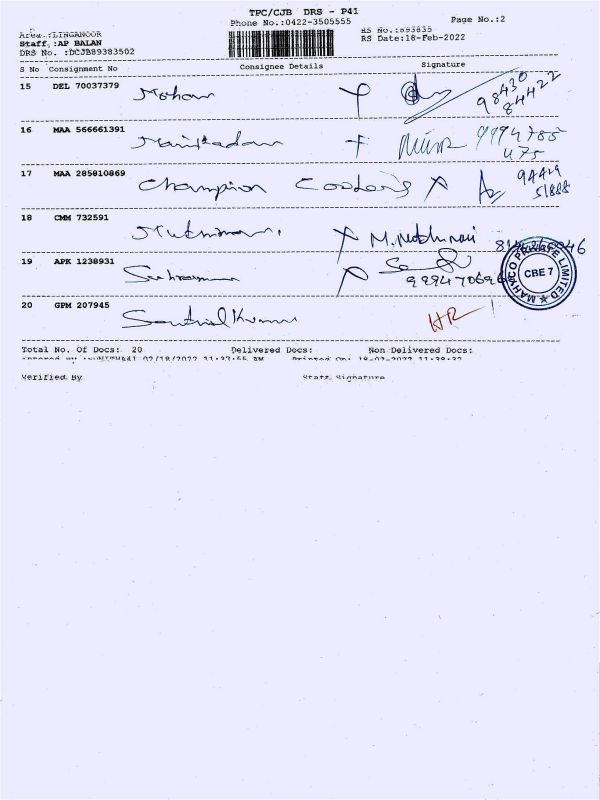 TPC/CJB DRS - P41
Phone No.:0422-3505555
Page No.:2
Area.:LINGANOOR
Staff :AP BALAN
DRS No. :DCJB89383502
RS No.:893835
RS Date:18-Feb-2022
S No Consignment No Consignee Details Signature
15 DEL 70037379 Mohan
98430
84422
16 MAA 566661391 Manikadan
9994785
475
17 MAA 285810869 Champion Coolers
94429
51888
18 CMM 732591
19 APK 1238931
20 GPM 207945 Senthil Kumar HR
MAHYCO PRIVATE LIMITED
CBE 7
Total No. Of Docs: 20 Delivered Docs: Non Delivered Docs:
02/18/2022 11:37:55 AM Printed On: 18-02-2022 11:38:32
Verified By Staff Signature